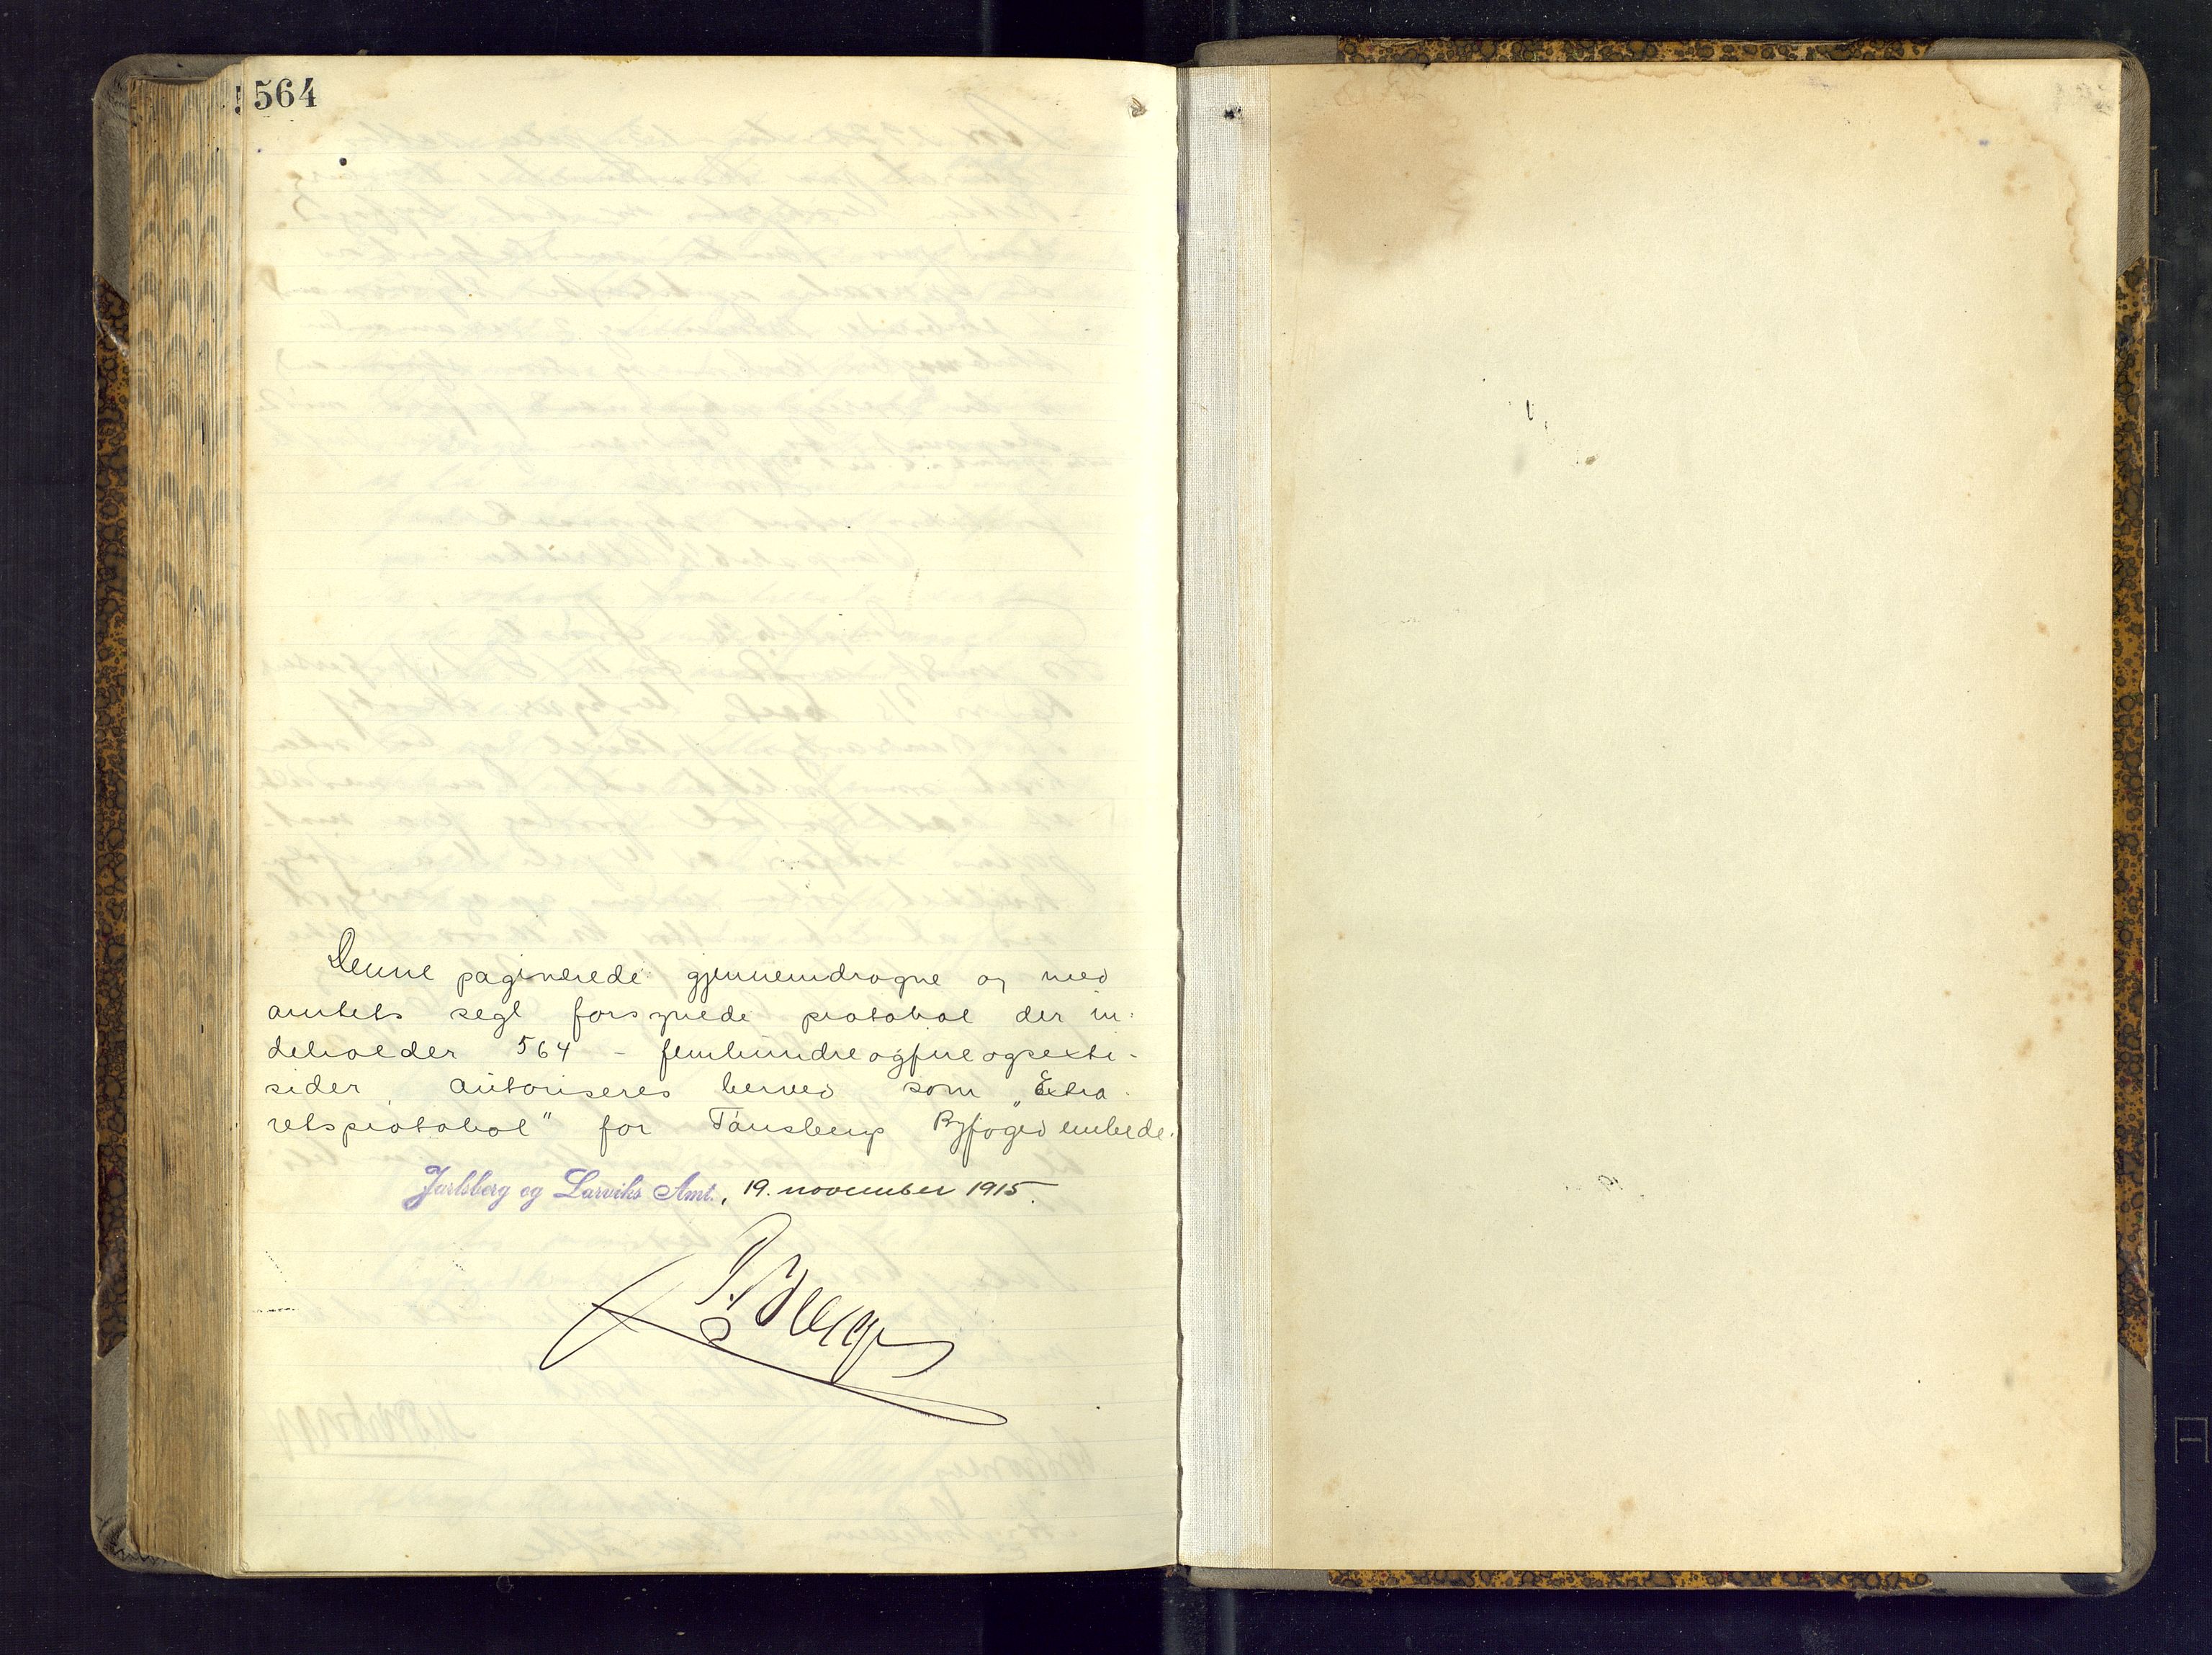 564
Denne paginerede gjennemdragne og med
amtets segl forsynede protokol der in-
deholder 564 - femhundreogfireogsexti -
sider, autoriseres herved som „Extra-
retsprotokol" for Tønsbergs Byfogedembede.
Jarlsberg og Larviks Amt., 19. november 1915.
P. Berg